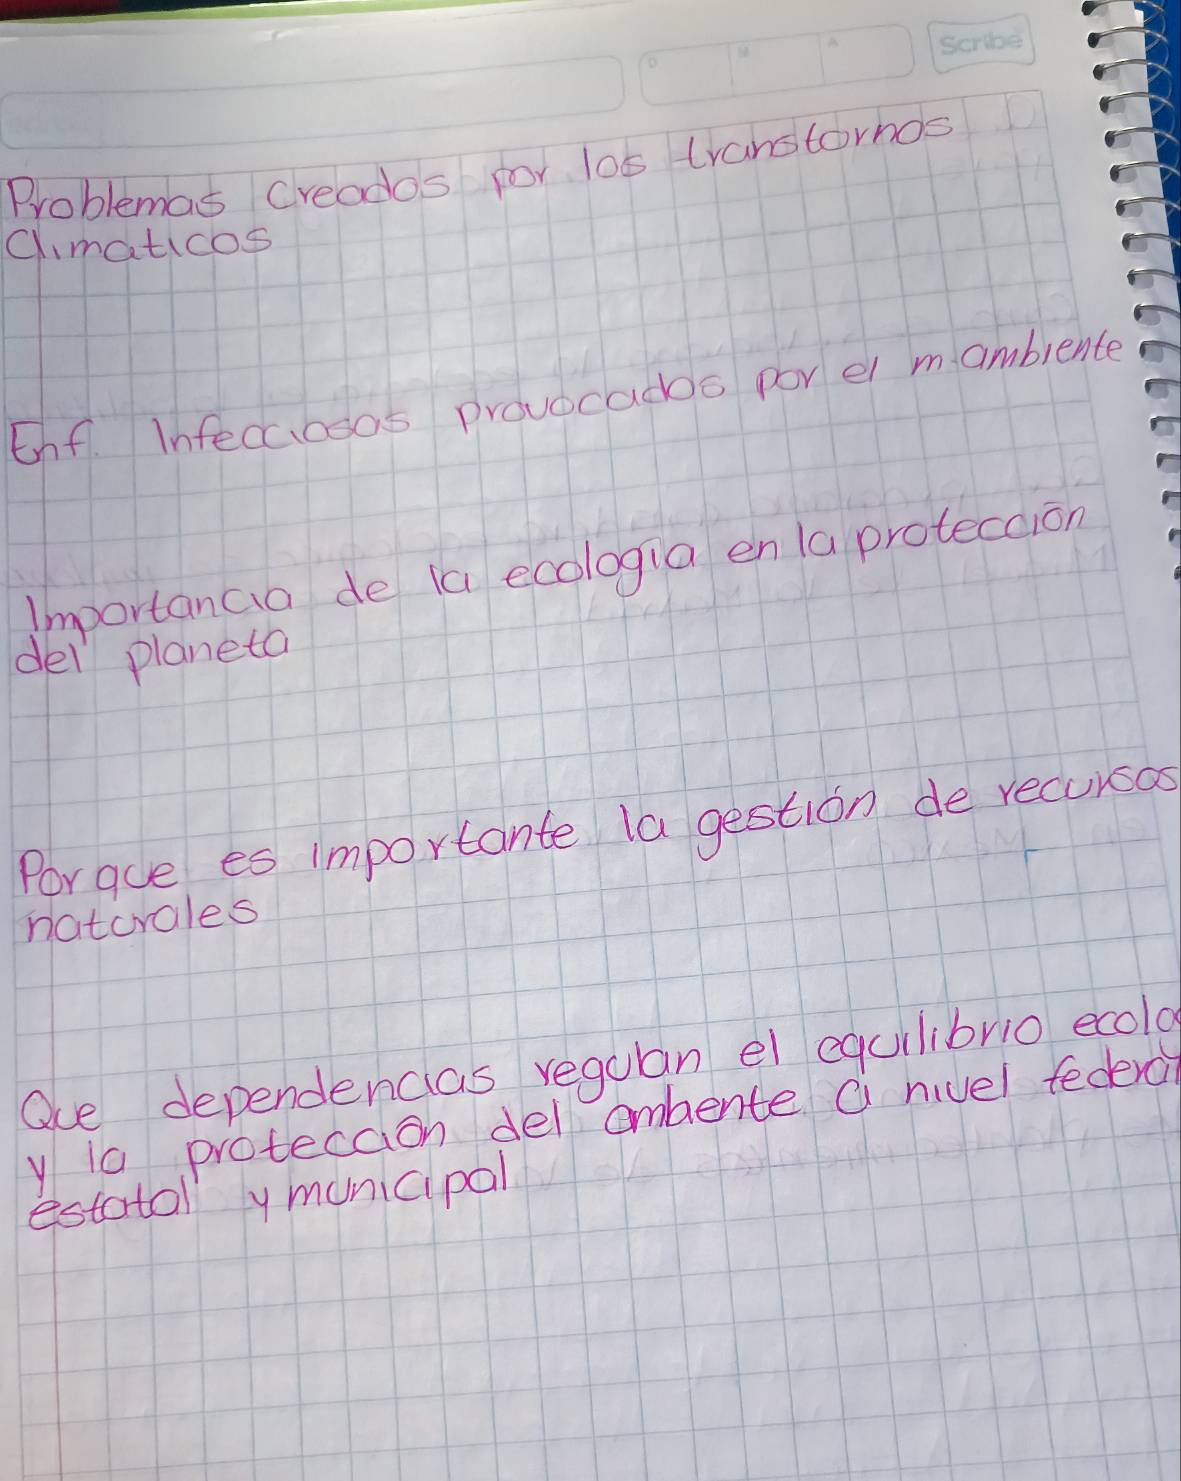 Scribe
D M A
Problemas Creados por los transtornos
Climaticos
Enf. Infecciosas provocados por el m.ambiente
Importancia de la ecologia en la protección
del planeta
Por que es importante la gestión de recursos
naturales
Que dependencias regulan el equilibrio ecolo
y la protección del ambiente a nivel federal
estatal y municipal